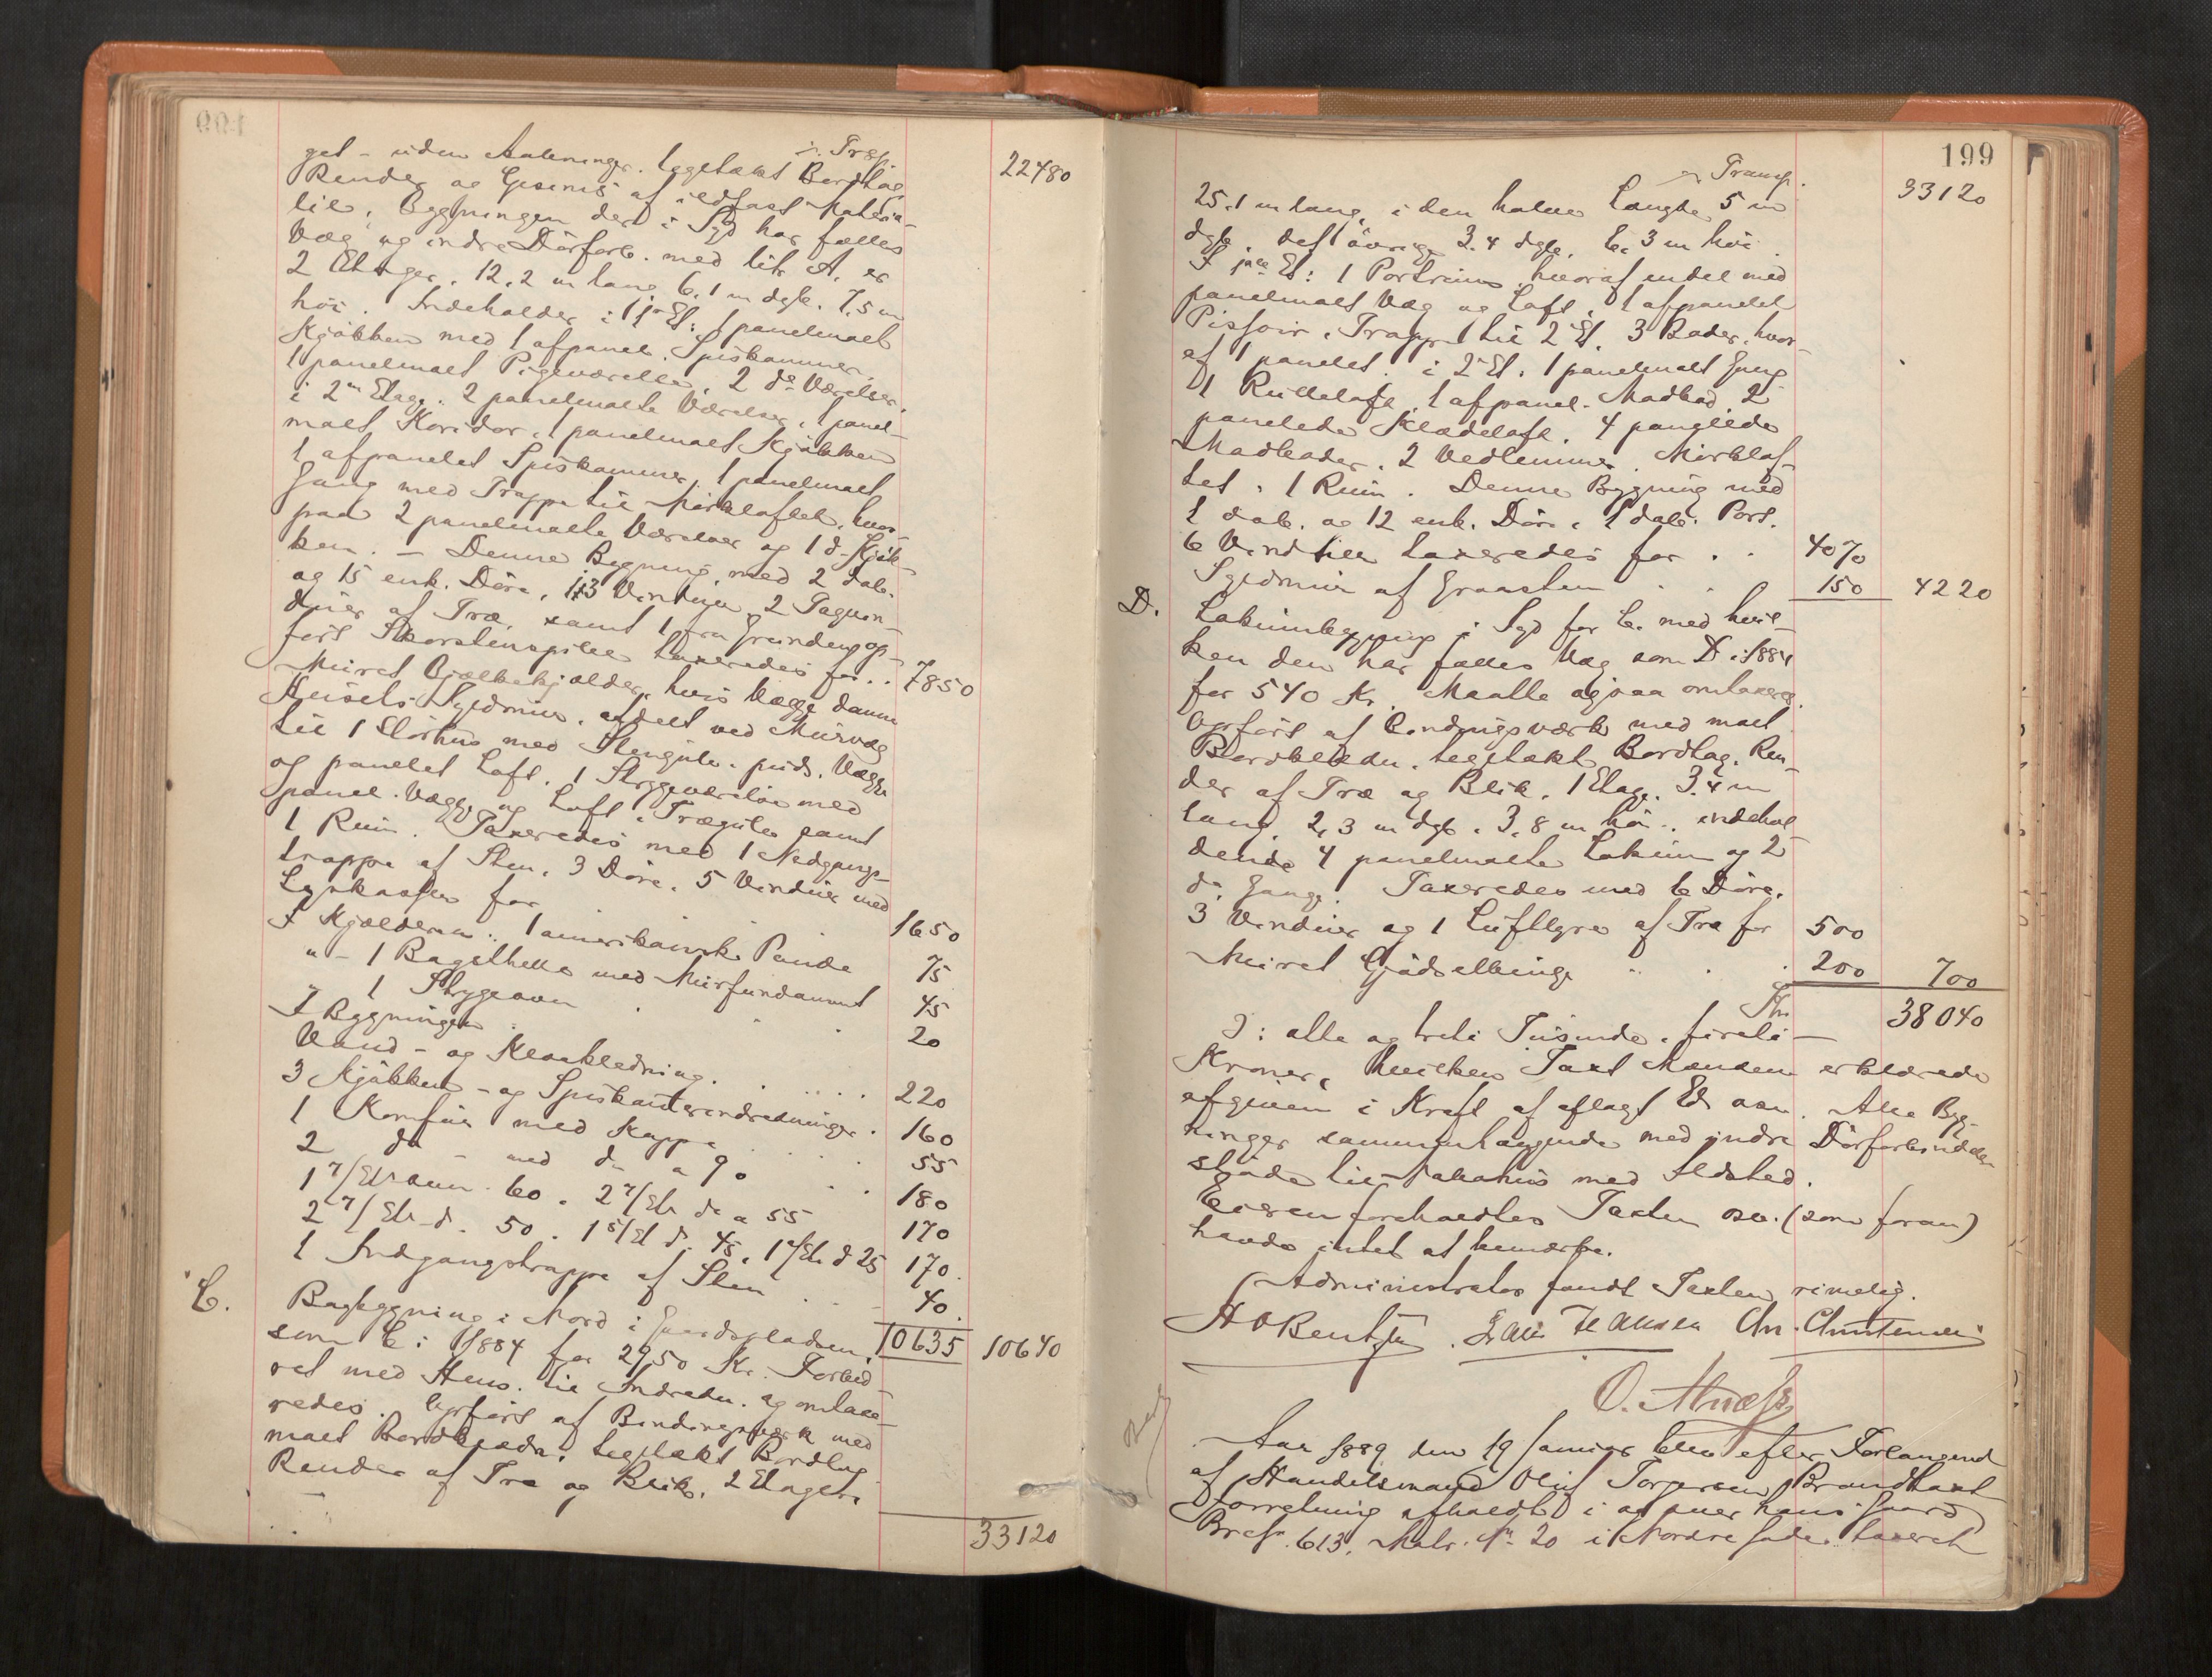 Transp. 22480
get - uden Aabninger. tegltækt Bordtag,
Render og Gesims af ildfast Materia-
lie, Bygningen der i Syd har fælles
Væg og indre Dørforb. med litr. A. er
2 Etager. 12,2 m lang, 6,1 m dyb. 7,5 m
høi. Indeholder i 1ste Et: 1 panelmalt
Kjøkken med 1 afpanel. Spiskammer.
1 panelmalt Pigeværelse, 2 do Værelser.
i 2den Etage. 2 panelmalte Værelser, 1 panel-
malt Koridor, 1 panelmalt Kjøkken
1 afpanelet Spiskammer, 1 panelmalt
Gang med Trappe til Mørkloftet, hvor-
paa 2 panelmalte Værelser og 1 do Kjøk-
ken. - Denne Bygning med 2 dob.
og 15 enk. Døre, 13 Vinduer, 2 Tagvin-
duer af Træ, samt 1 fra Grunden op-
ført Skorstenspibe taxeredes for . . 7850
Muret Bjelkekjælder, hvis Vægge danne
Husets Syldmur, afdelt ved Murvæg
til 1 Rørhus med Stengulv, puds. Vægge
og panelet Loft. 1 Strygeværelse med
panel. Vægge og Loft, Trægulv samt
1 Rum. Taxeredes med 1 Nedgangs-
trappe af Sten, 3 Døre, 5 Vinduer med
Lyskasser for 1650
I Kjælderen: 1 amerikansk Pande 75
" - 1 Bagehelle med Murfundament 45
" 1 Strygeovn . . . 20
I Bygningen
Vand - og Kloakledning . . . . . 220
3 Kjøkken - og Spiskammerindredninger . 160
1 Komfur med Kappe . . . 55
2 do - med do a 90 . . 180
1 7/Et ovn 60. 2 7/Et do a 55 170
2 7/Et do 50. 1 5/Et do 45, 1 4/Et do 25 170
1 Indgangstrappe af Sten . . 40
10635 10640
C. Bagbygning i Nord i Gaardspladsen,
som C i 1884 for 2750 Kr. Forbed-
ret med Hens. til Indredn. og omtaxe-
redes. Opført af Bindingsværk med
malt Bordklædn., tegltækt Bordtag
Render af Træ og Blik, 2 Etager,
33120
199
Transp. 33120
25,1 m lang, i den halve Længde 5 m
dyb, det øvrige 3,4 dyb, 6,3 m høi
I 1ste Et: 1 Portrum, hvoraf endel med
panelmalt Væg og Loft, 1 afpanelet
Pissoir, Trappe til 2 Et. 3 Boder, hvor-
af 1 panelet. i 2 Et. 1 panelmalt Gang
1 Rulleloft, 1 afpanel. Madbod, 2
panelede Klædeloft, 4 panelede
Madboder, 2 Vedlemmer. Mørklof-
tet, 1 Rum. Denne Bygning med
1 dob. og 12 enk. Døre, 1 dob. Port.
6 Vinduer taxeredes for . . 4070
Syldmur af Graasten . . 150 4220
D. Lokumbygning i Syd for C. med hvil-
ken den har fælles Væg som D i 1884
for 540 Kr. Maalte ogsaa omtaxeres.
Opført af Bindingsværk med malt
Bordklædn. tegltækt Bordtag. Ren-
der af Træ og Blik, 1 Etage, 3,4 m
lang, 2,3 m dyb, 3,8 m høi. indehol-
dende 4 panelmalte Lokum og 2
do Gange. Taxeredes med 6 Døre.
3 Vinduer og 1 Luftlyre af Træ for 500
Muret Gjødselbinge " . . 200 700
Kr. 38040
ɔ: otte og treti Tusinde, fireti -
Kroner, hvilken Taxt Mændene erklærede
afgiven i Kraft af aflagt Ed osv. Alle Byg-
ninger sammenhængende med indre Dørforbindelse
støde til Nabohus med Ildsted.
Eieren foreholdtes Taxten osv. (som foran)
havde intet at bemærke.
Administrator fandt Taxten rimelig.
A O Bentzen. Lau Hansen Chr. Christensen
Aar 1889 den 19 Januar blev efter Forlangend
af Handelsmand Oluf Torgersen Brandtaxt
forretning afholdt i og over hans Gaard
Brcfr. 613. Matr. No 20 i Nordre Gade, taxeret